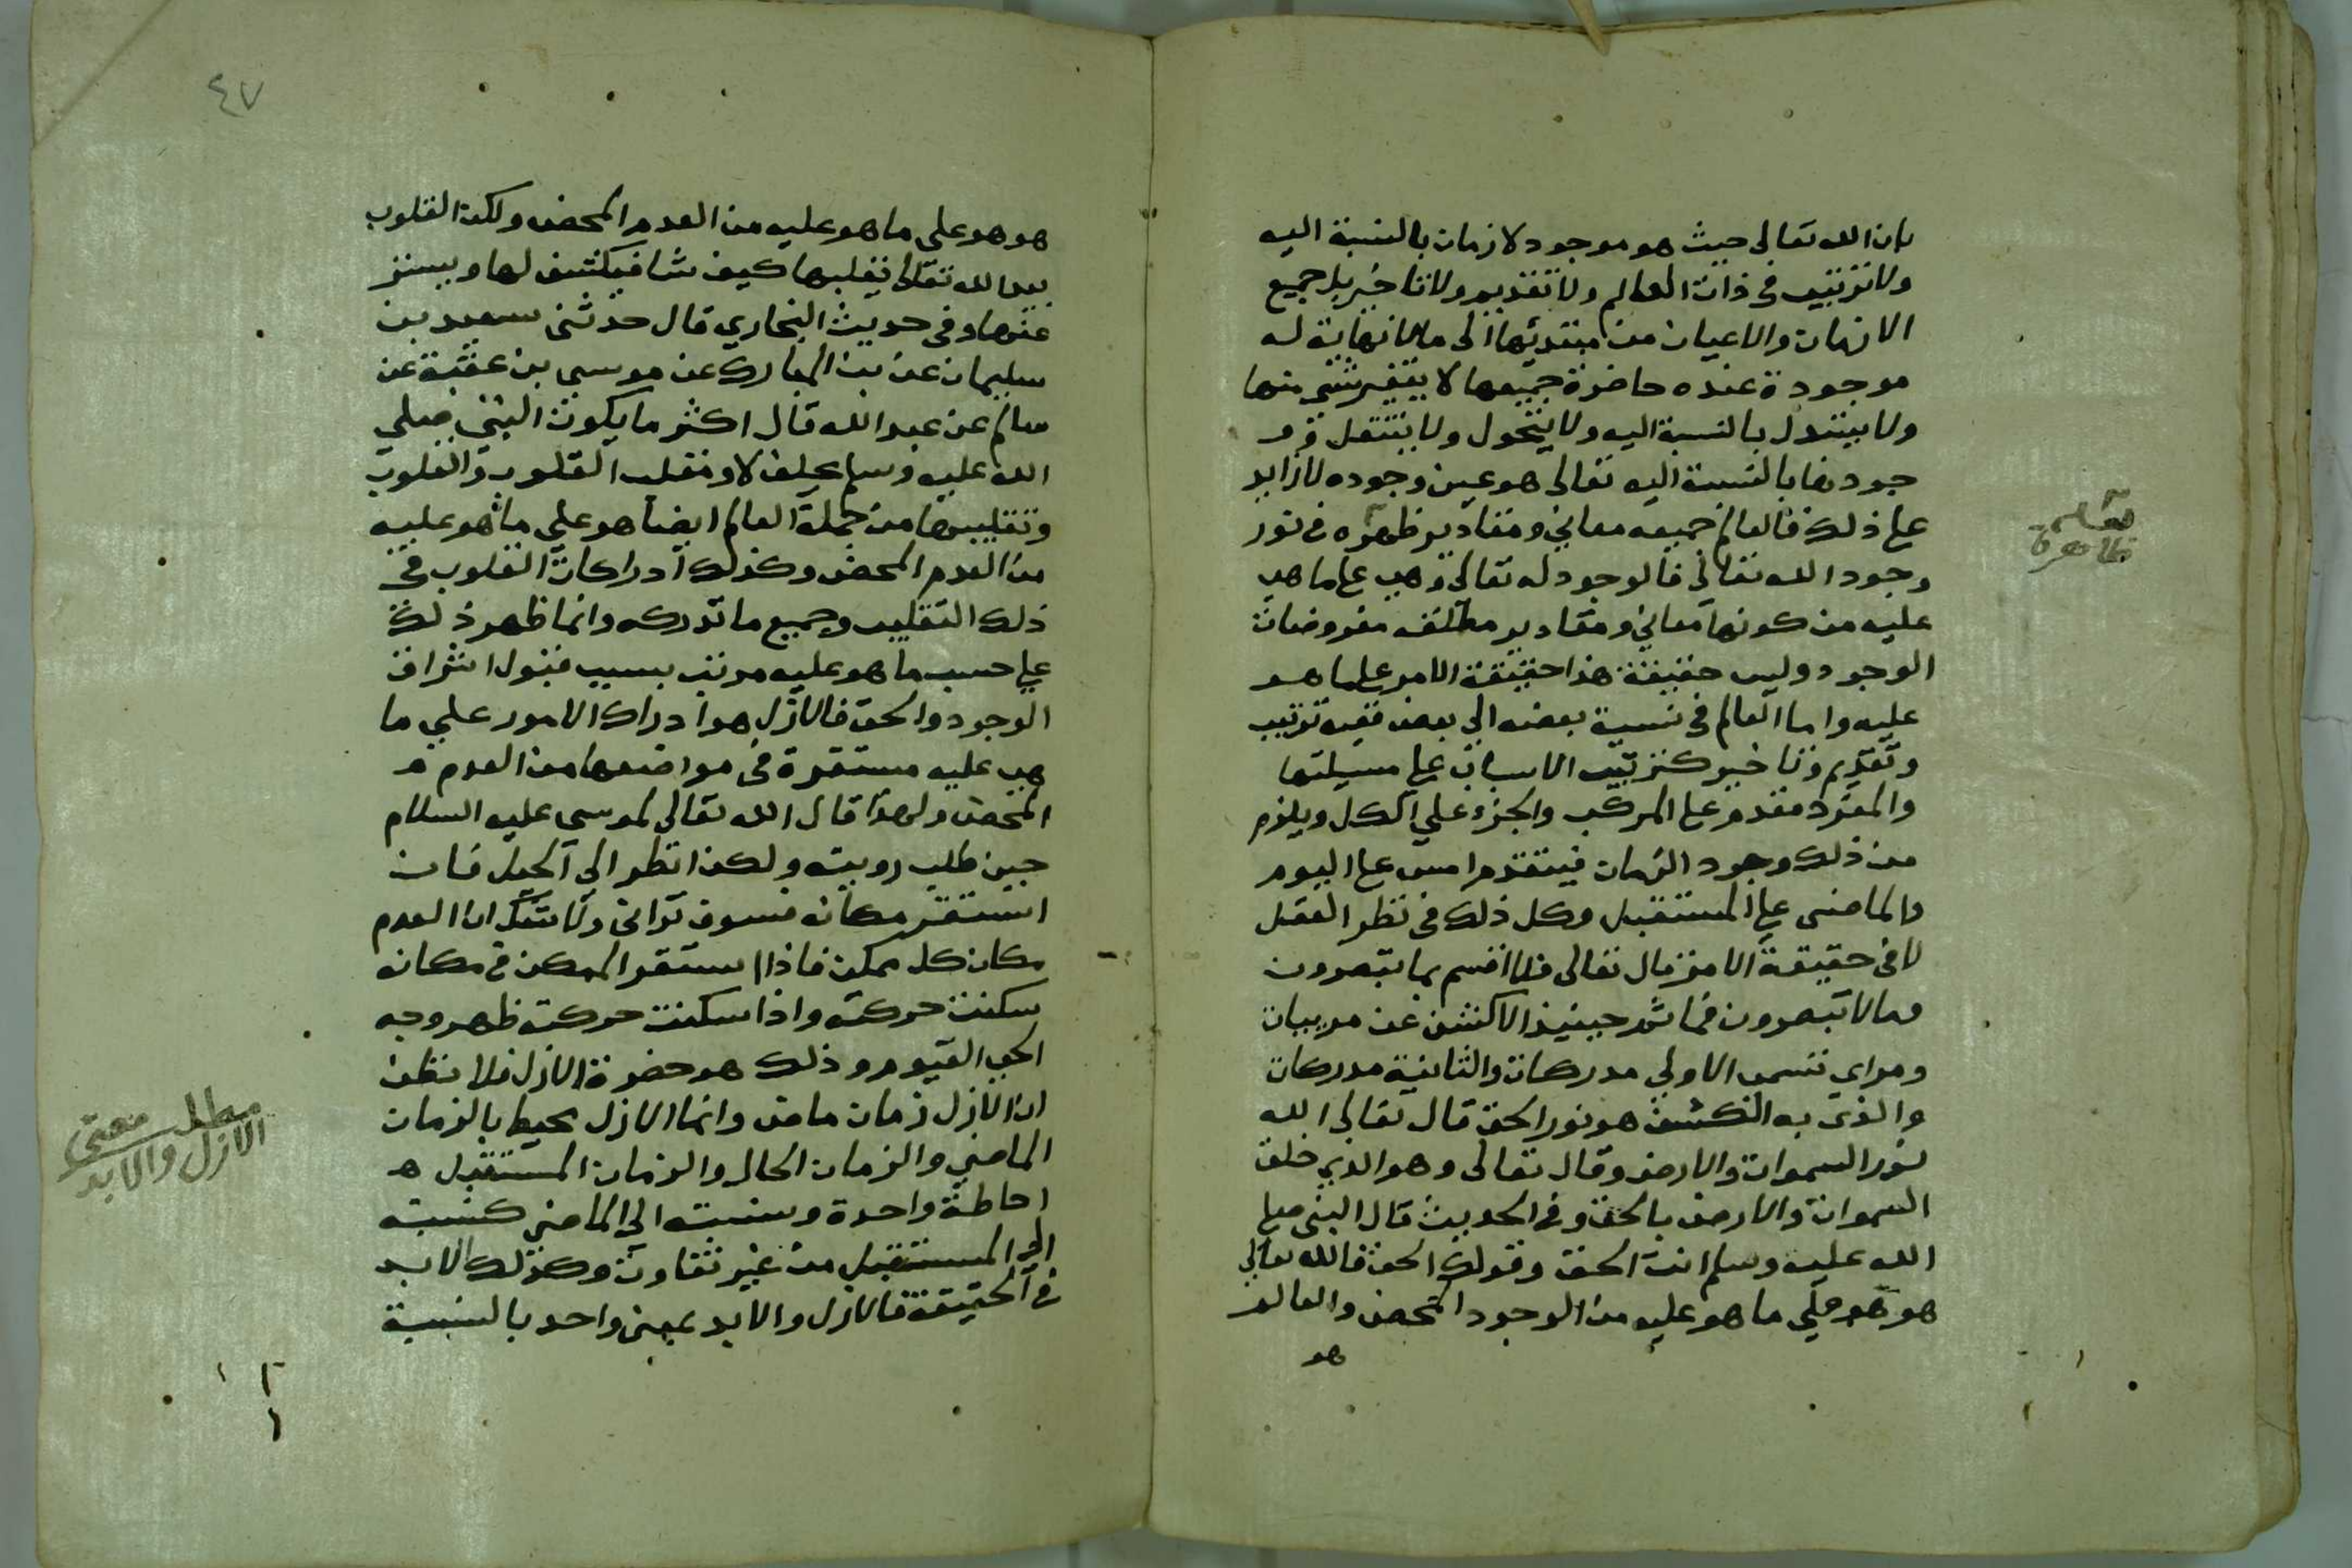 بان الله تعالى حيث هو موجود لا زمان بالنسبة اليه
ولا ترتيب في ذات العالم ولا تقديم ولا تاخير بل جميع
الازمان والاعيان من مبتديها الى ما لا نهاية له
موجودة عنده حاضرة جميعها لا يتغير شي منها
ولا يتبدل بالنسبة اليه ولا يتحول ولا ينتقل و
جودها بالنسبة اليه تعالى هو عين وجوده لا زايد
على ذلك فالعالم جميعه معاني ومقادير ظهره في نور
وجود الله تعالى فالوجود له تعالى وهي على ما هي
عليه من كونها معاني ومقادير مفروضات
الوجود وليس حقيقة هذا حقيقة الامر على ما هو
عليه واما العالم في نسبة بعضه الى بعض ففيه ترتيب
وتقديم وتاخير كترتيب الاسباب على
والمفرد مقدم على المركب والجزء على الكل ويلزم
من ذلك وجود الزمان فيتقدم امس على اليوم
والماضي على المستقبل وكل ذلك في نظر العقل
لا في حقيقة الامر قال تعالى فلا اقسم بما تبصرون
وما لا تبصرون فما ثم حينيذ الا كشف عن مرييات
ومراى تسمى الاولى مدركات والثانية مدركات
والذي به الكشف هو نور الحق قال تعالى الله
نور السموات والارض وقال تعالى وهو الذي خلق
السموات والارض بالحق وفي الحديث قال النبي صلى
الله عليه وسلم انت الحق وقولك الحق فالله تعالى
هو هو على ما هو عليه من الوجود المحض والعالم
هو
ظاهرة
٤٧
هو هو على ما هو عليه من العدم المحض ولكن القلوب
بيد الله تعالى يقلبها كيف شا فيكشف لها ويستر
عنها وفي حديث البخاري قال حدثني سعيد بن
سليمان عن بن المبارك عن موسى بن عقبة عن
سالم عن عبد الله قال اكثر ما يكون النبي صلى
الله عليه وسلم يحلف لا ومقلب القلوب والقلوب
وتقليبها من جملة العالم ايضا هو على ما هو عليه
من العدم المحض وكذلك ادراكات القلوب في
ذلك التقليب وجميع ما تدركه وانما ظهر ذلك
على حسب ما هو عليه مرتب بسبب قبول اشراق
الوجود والحق فالازل هو ادراك الامور على ما
هي عليه مستقرة في مواضعها من العدم
المحض ولهذا قال الله تعالى لموسى عليه السلام
حين طلب رويته ولكن انظر الى الجبل فان
استقر مكانه فسوف تراني ولا شك ان العدم
مكان كل ممكن فاذا استقر الممكن في مكانه
سكنت حركته واذا سكنت حركته ظهر وجه
الحي القيوم وذلك هو حضرة الازل فلا تظن
ان الازل زمان ماض وانما الازل محيط بالزمان
الماضي والزمان الحال والزمان المستقبل
احاطة واحدة ونسبته الى الماضي كنسبته
الى المستقبل من غير تفاوت وكذلك الابد
في الحقيقة فالازل والابد بمعنى واحد بالنسبة
مطلب معنى
الازل والابد